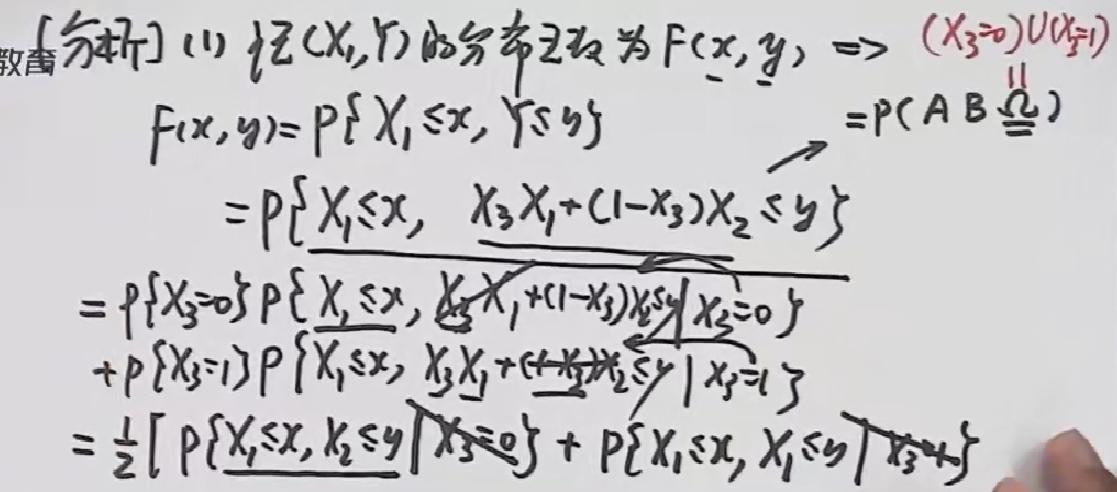 教育
[分析] (1) 记(X₁,Y)的分布函数为F(x,y) => (X₃=0)∪(X₃=1)
F(x,y)=P{X₁≤x, Y≤y} =P(A B Ω)
=P{X₁≤x, X₃X₁+(1-X₃)X₂≤y}
=P{X₃=0}P{X₁≤x, X₃X₁+(1-X₃)X₂≤y|X₃=0}
+P{X₃=1}P{X₁≤x, X₃X₁+(1-X₃)X₂≤y|X₃=1}
=½[P{X₁≤x, X₂≤y|X₃=0}+P{X₁≤x, X₁≤y|X₃=1}